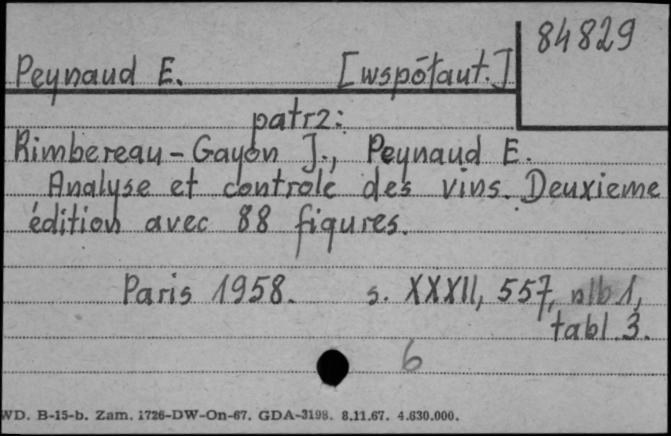 84829
Peynaud E. [współaut.]
patrz:
Rimbereau-Gayon J., Peynaud E.
Analyse et controle des vins. Deuxieme
édition avec 88 figures.
Paris 1958. s. XXXII, 557, nlb 1,
tabl. 3.
6
WD. B-15-b. Zam. 1726-DW-On-67. GDA-3198. 8.11.67. 4.630.000.